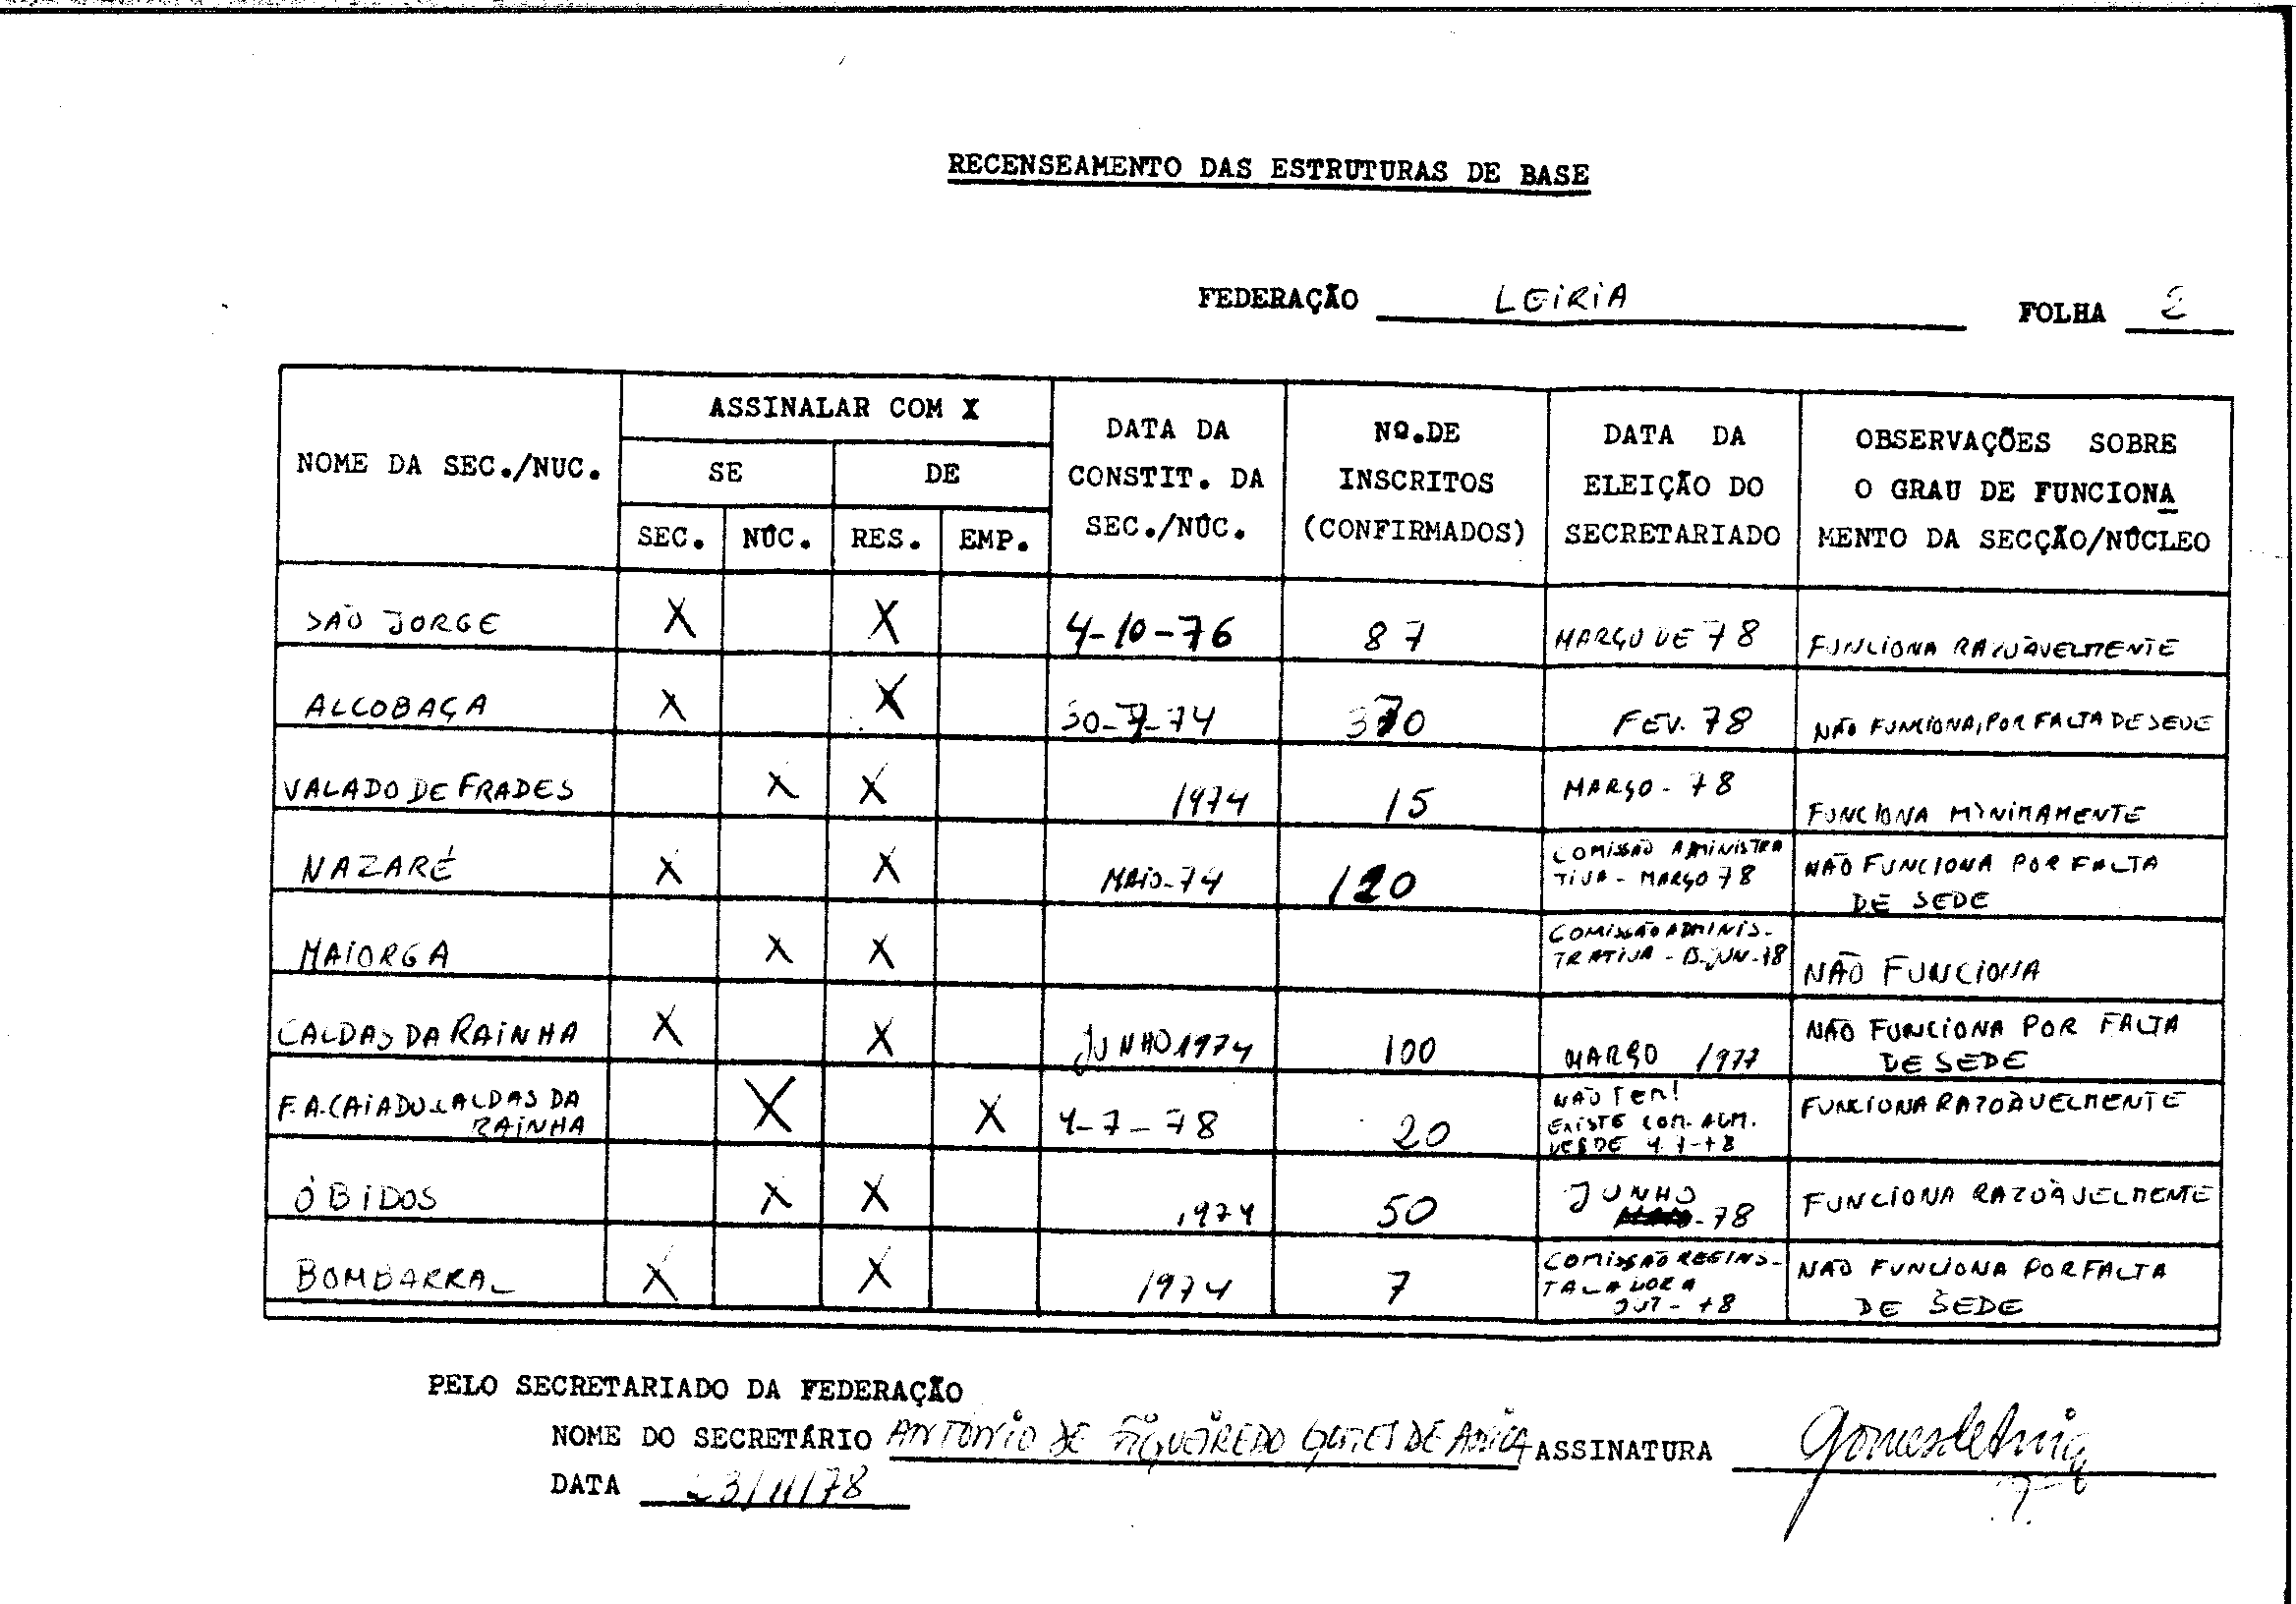 RECENSEAMENTO DAS ESTRUTURAS DE BASE
FEDERAÇÃO LEIRIA FOLHA 2
NOME DA SEC./NUC.
ASSINALAR COM X
SE DE
SEC. NÚC. RES. EMP.
DATA DA
CONSTIT. DA
SEC./NÚC.
Nº.DE
INSCRITOS
(CONFIRMADOS)
DATA DA
ELEIÇÃO DO
SECRETARIADO
OBSERVAÇÕES SOBRE
O GRAU DE FUNCIONA
MENTO DA SECÇÃO/NÚCLEO
SÃO JORGE X X 4-10-76 87 MARÇO DE 78 FUNCIONA RAZOÀVELMENTE
ALCOBAÇA X X 30-7-74 370 FEV. 78 NÃO FUNCIONA, POR FALTA DE SEDE
VALADO DE FRADES X X 1974 15 MARÇO - 78 FUNCIONA MÌNIMAMENTE
NAZARÉ X X MAIO-74 120 COMISSÃO ADMINISTRA
TIVA - MARÇO 78 NÃO FUNCIONA POR FALTA
DE SEDE
MAIORGA X X COMISSÃO ADMINIS-
TRATIVA - JUN-78 NÃO FUNCIONA
CALDAS DA RAINHA X X JUNHO 1974 100 MARÇO 1977 NÃO FUNCIONA POR FALTA
DE SEDE
F.A.CAIADO CALDAS DA
RAINHA X X 4-7-78 20 NÃO TEM!
EXISTE COM. ADM.
DESDE 4-7-78 FUNCIONA RAZOÀVELMENTE
ÓBIDOS X X 1974 50 JUNHO
-78 FUNCIONA RAZOÀVELMENTE
BOMBARRAL X X 1974 7 COMISSÃO REEINS-
TALADORA
OUT-78 NÃO FUNCIONA POR FALTA
DE SEDE
PELO SECRETARIADO DA FEDERAÇÃO
NOME DO SECRETÁRIO ANTONIO DE FIGUEIREDO GOMES DE ASSINATURA
DATA 23/11/78